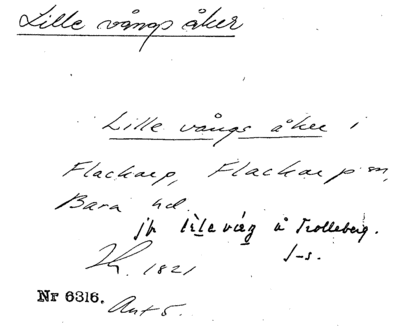 Lille vångs åker
Lille vångs åker i
Flackarp, Flackarp sn,
Bara hd.
jfr lile våg å Trolleberg.
J-s.
Th. 1821
Nr 6316.
Ant 5.